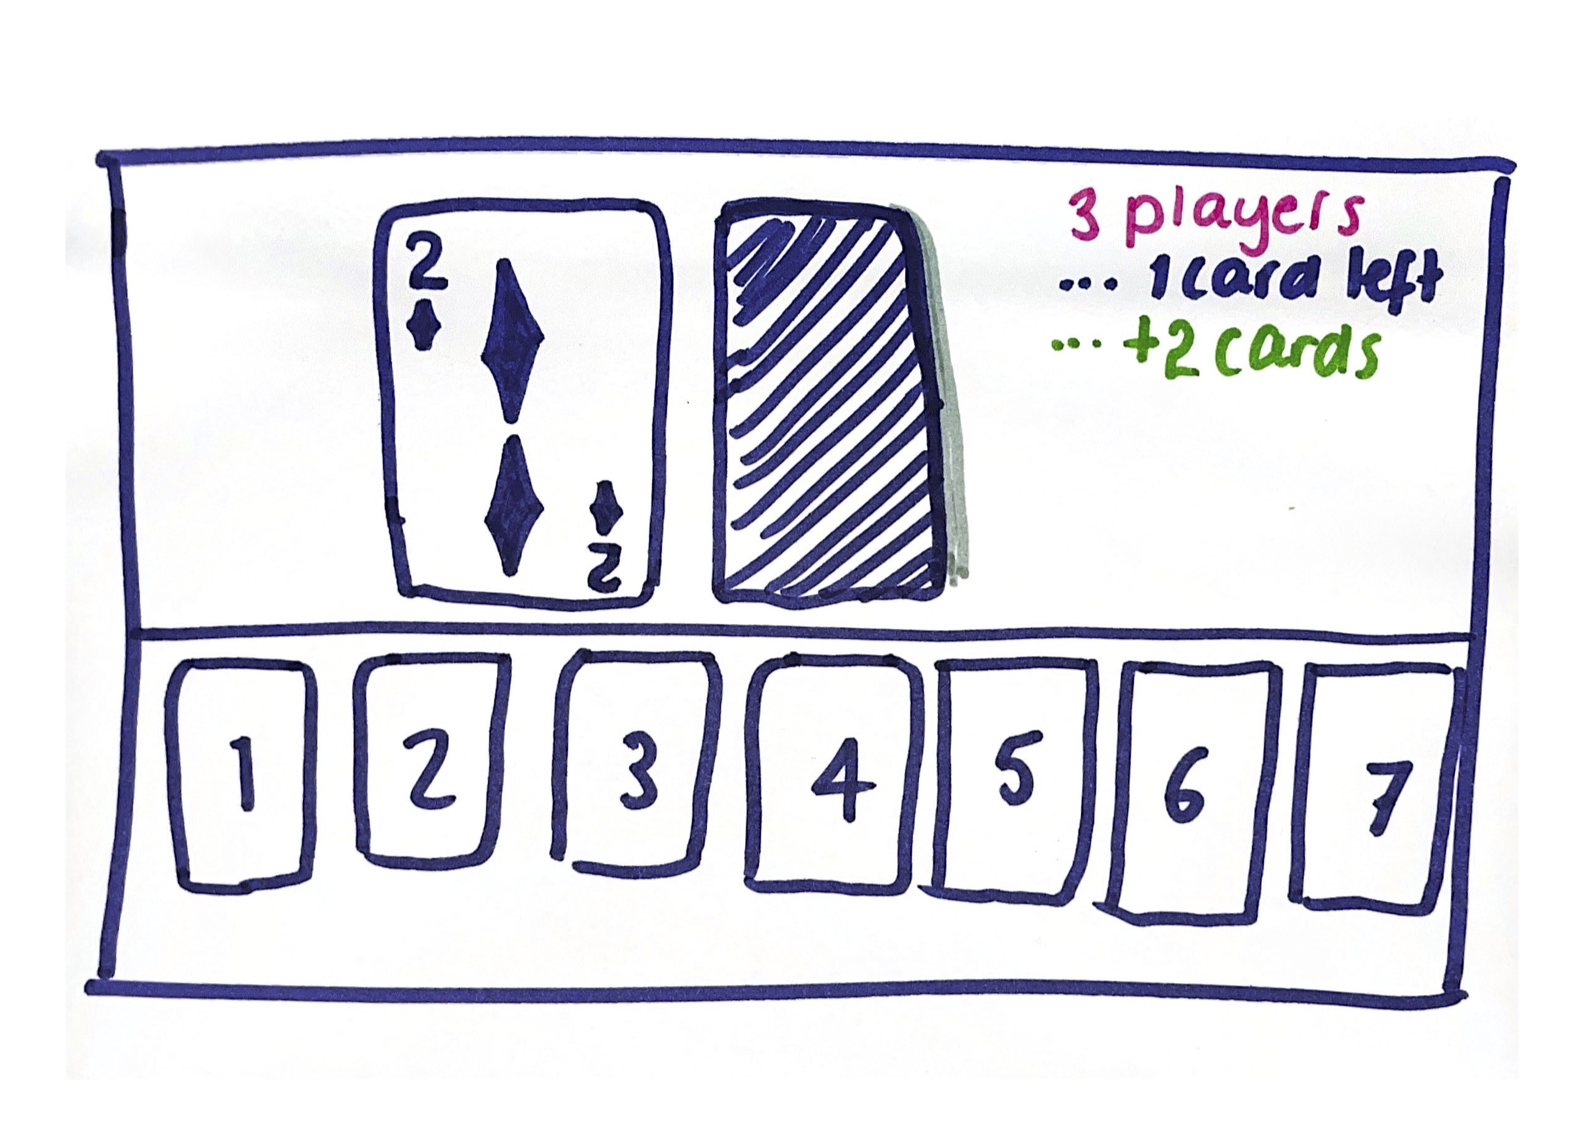 2
3 players
... 1 card left
... +2 cards
2
1 2 3 4 5 6 7